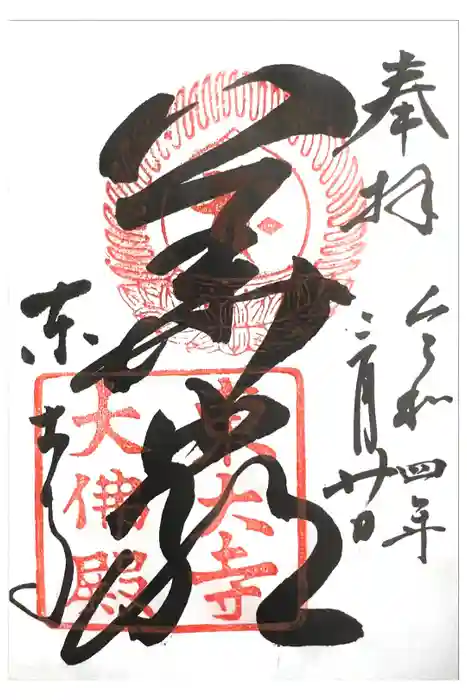 奉拝
令和四年
三月廿日
華厳
東大寺
東大寺
大佛殿